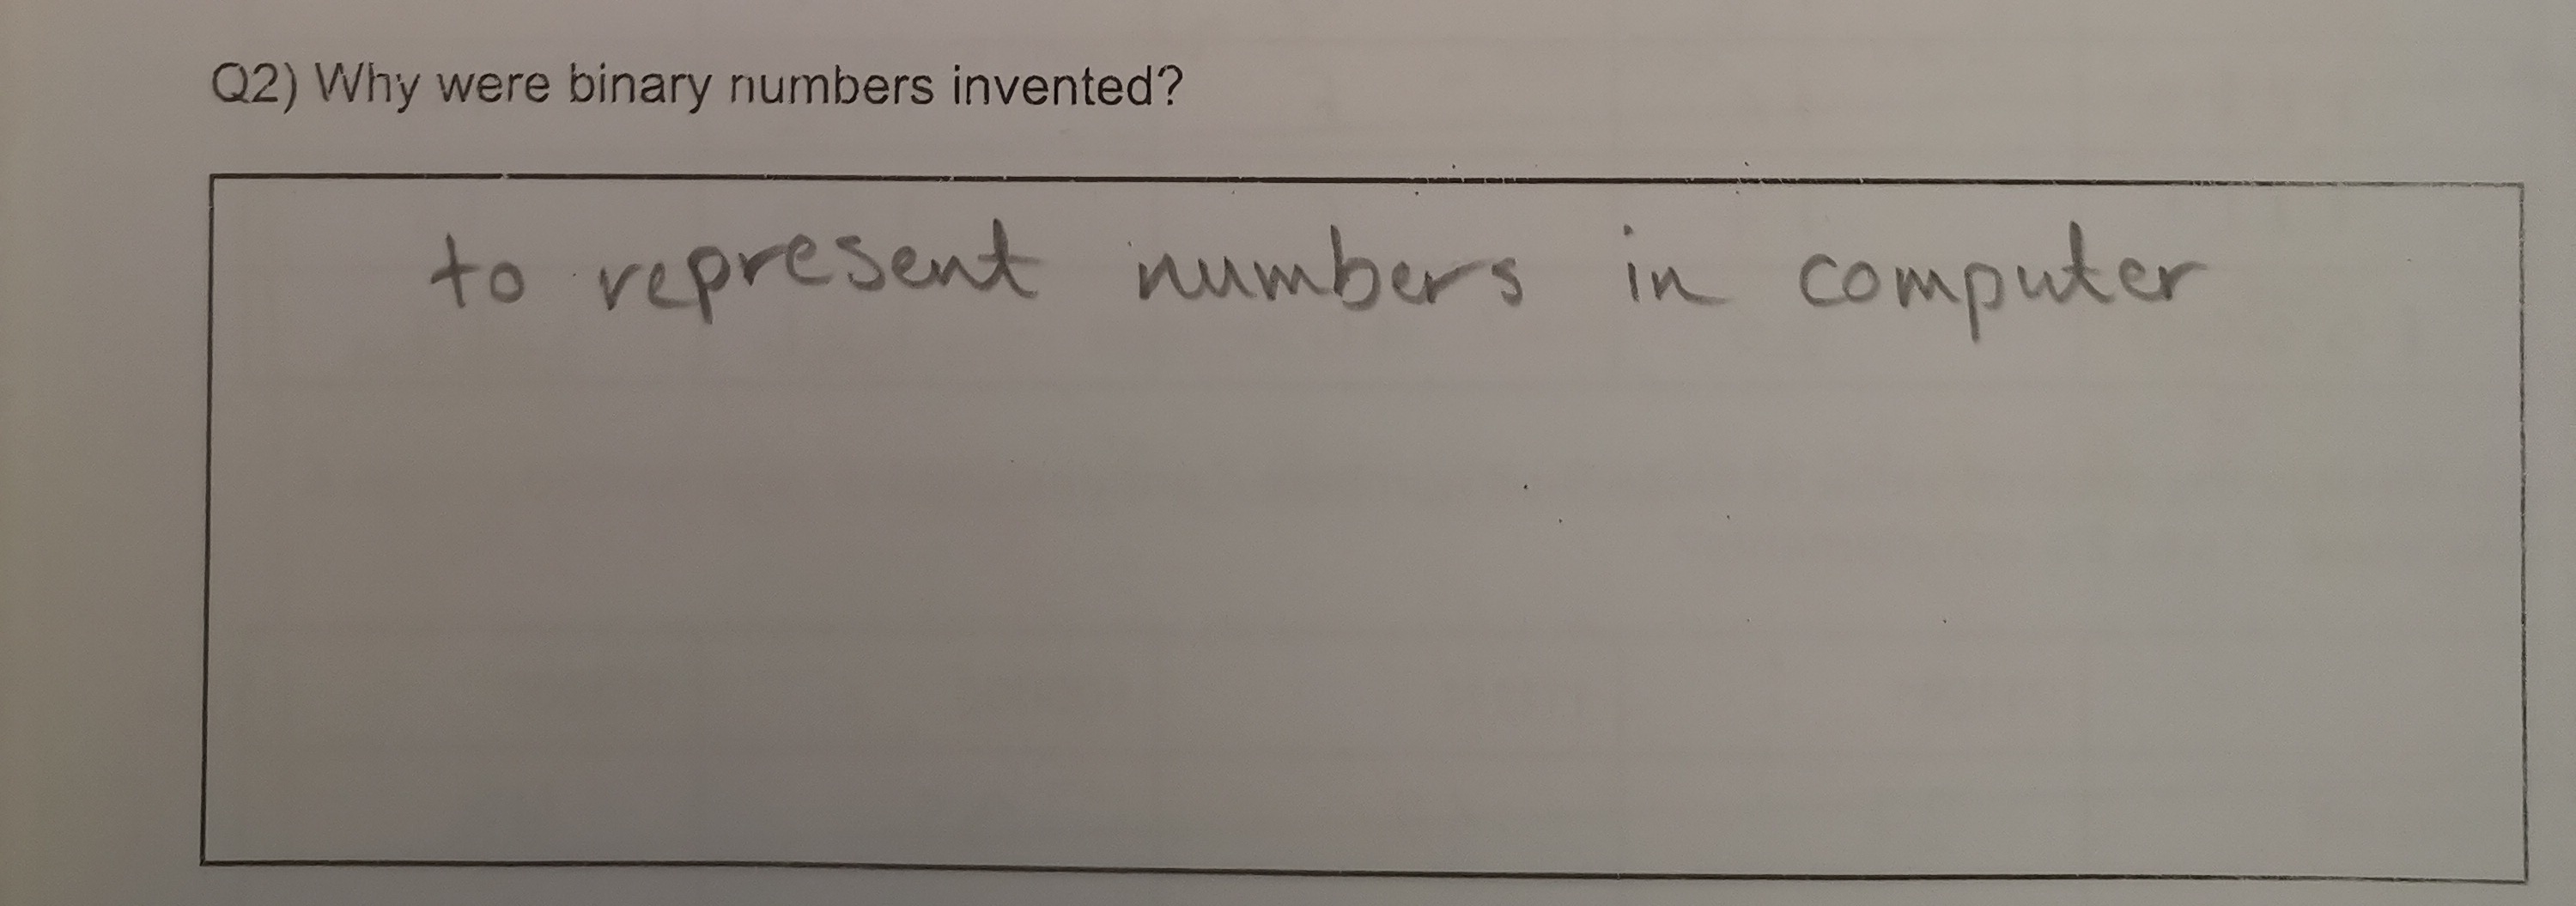 Q2) Why were binary numbers invented?
to represent numbers in computer